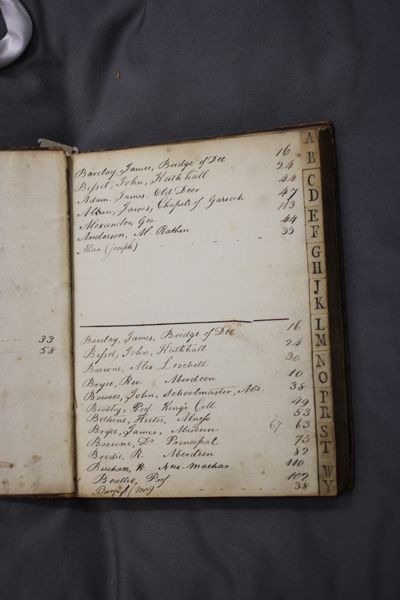 Barclay, James, Bridge of Dee 16
Bisset, John, Keithhall 24
Adam, James, Old Deer 44
Allan, James, Chapel of Garioch 47
Alexander, Geo. 113
Anderson, Al. Rathen 44
Allan (Joseph) 39
33
58
Barclay, James, Bridge of Dee 16
Bisset, John, Keithhall 24
Browne, Alex Leochell 30
Bryce, Rev. Aberdeen 10
Bowers, John, Schoolmaster, 38
Bentley, Prof. King's Coll. 49
Bethune, Hector, Alness 53
Bryce, James, Aberdeen 67. 63
Browne, Dr. Principal 75
Brodie, R. Aberdeen 82
Buchan, W. New-machar 110
Beattie, Prof 109
(Mr) 38
A
B
C
D
E
F
G
H
J
K
L
M
N
O
P
R
S
T
W
Y